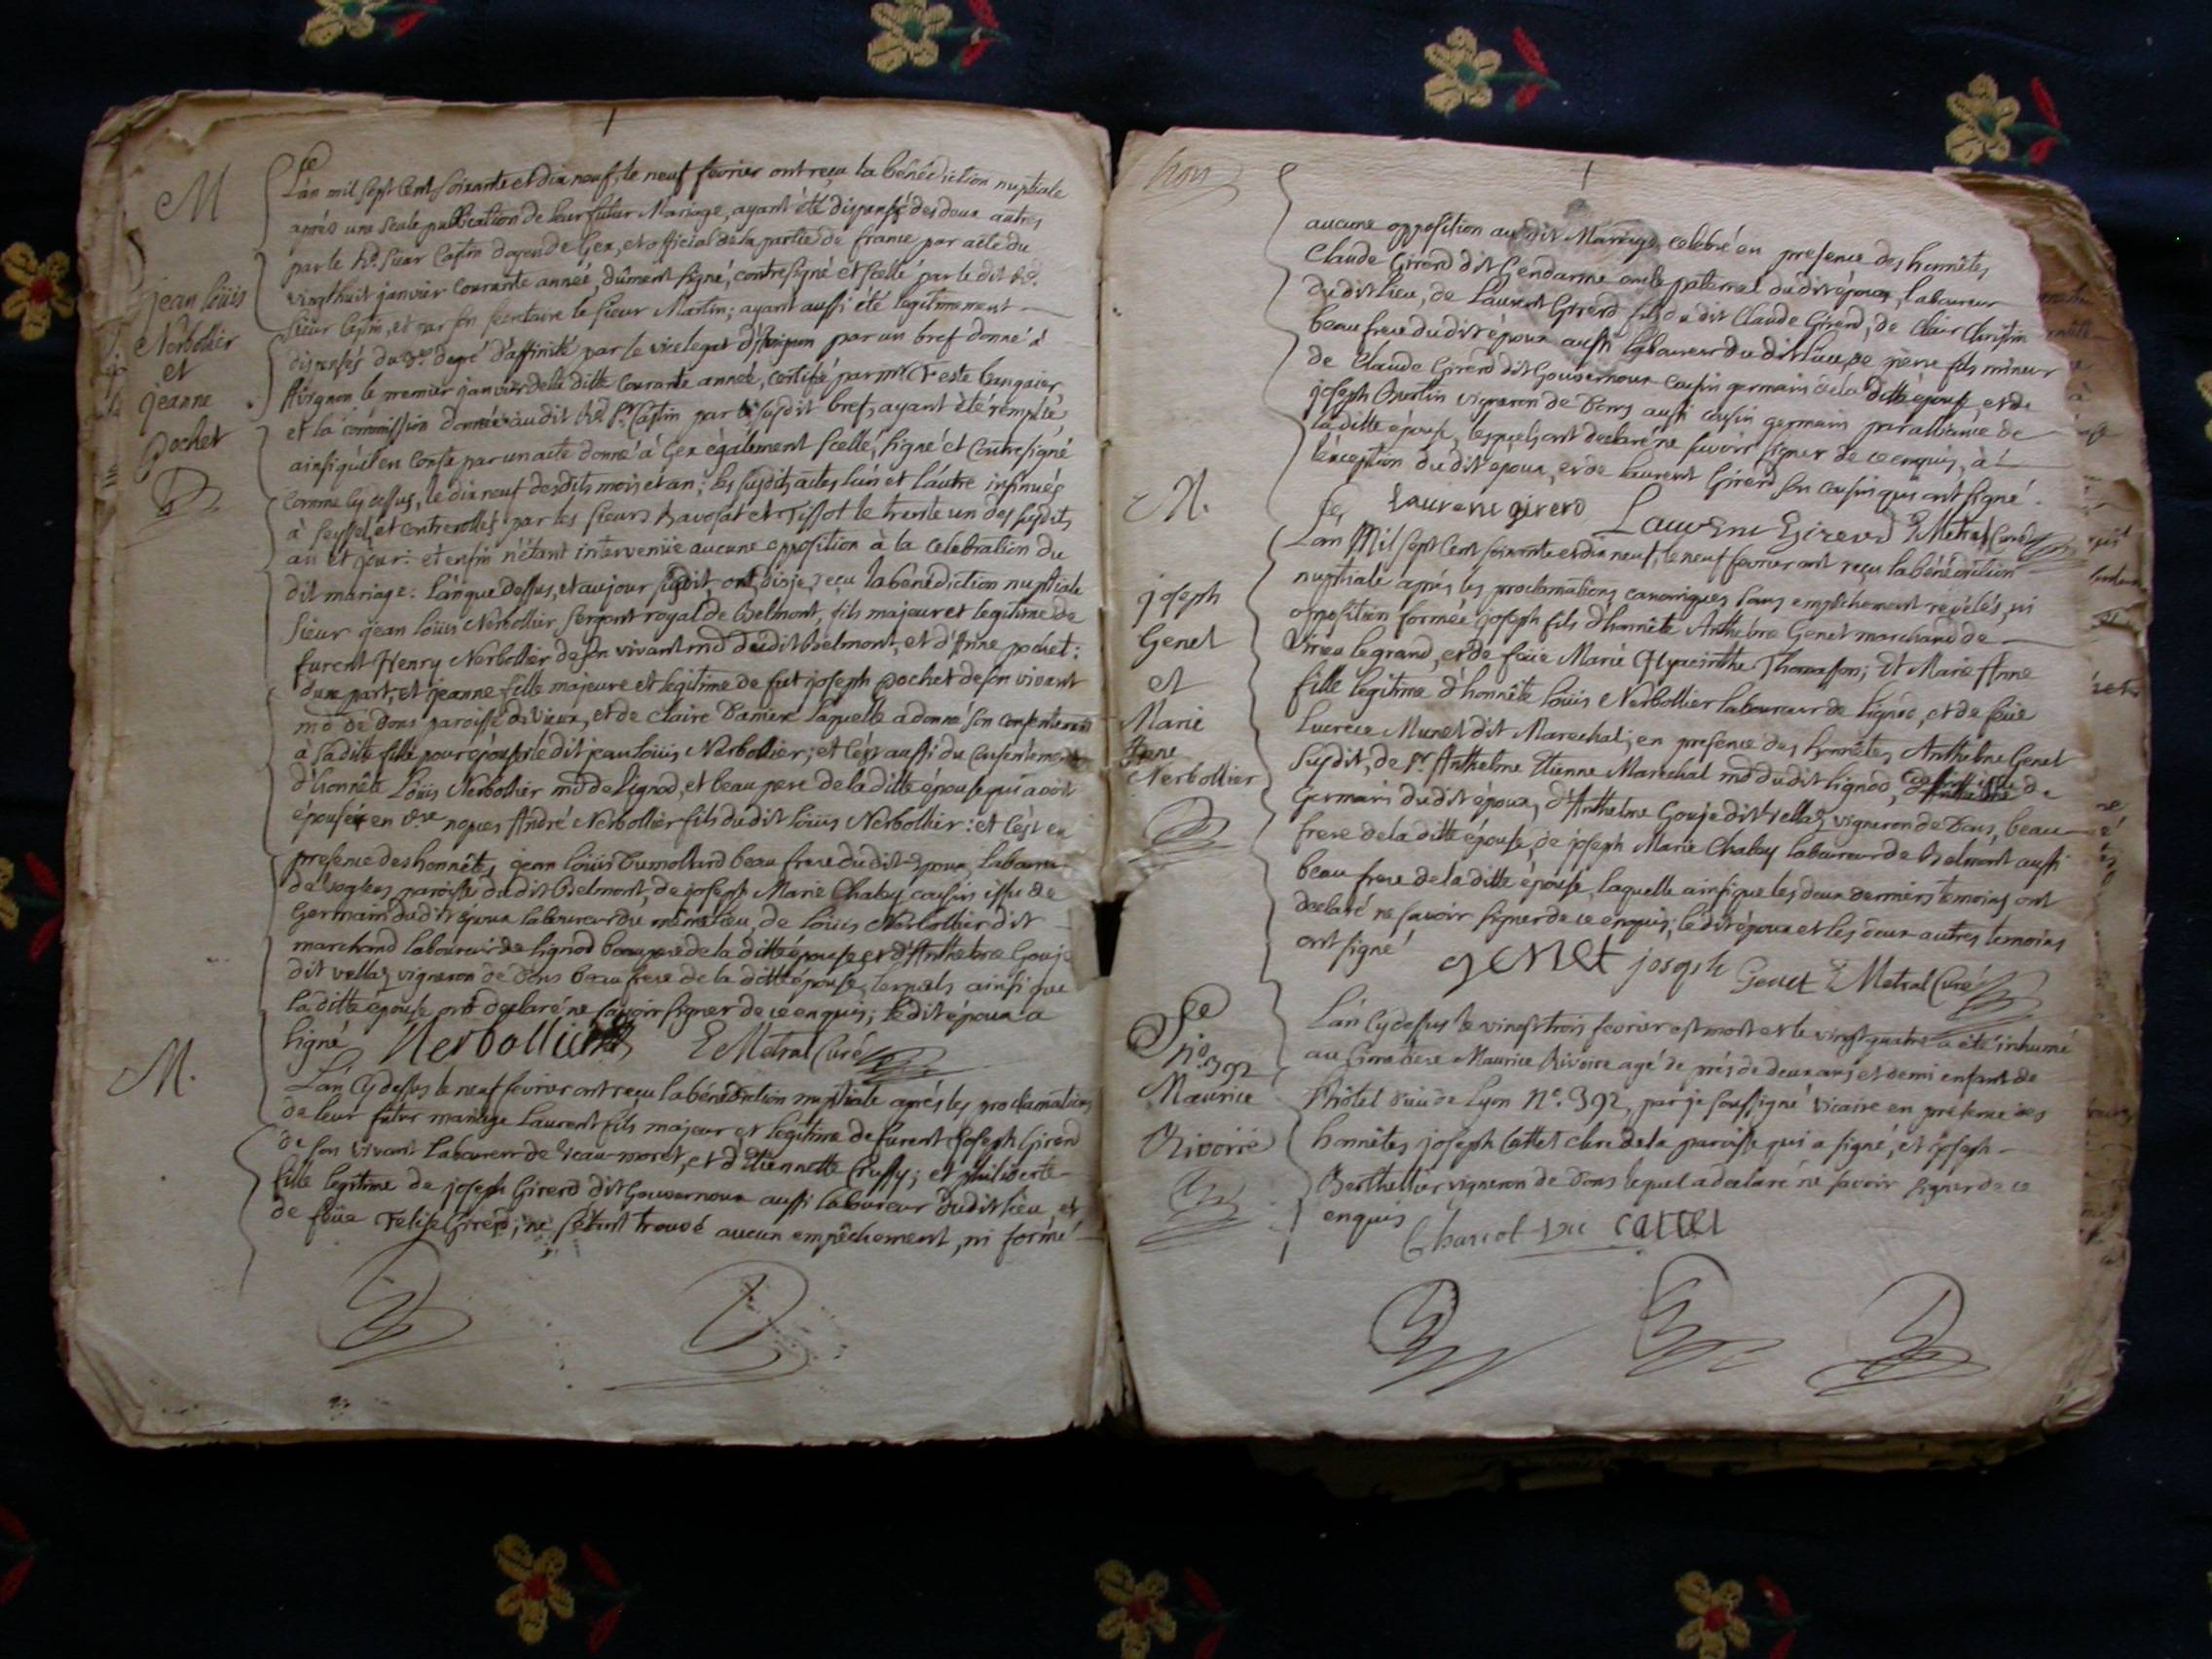 M
jean loüis
Nerbollier
et
jeanne
Pochet
L'an mil sept cent soixante et dix neuf, le neuf fevrier ont reçu la bénédiction nuptiale
après une seule publication de leur futur Mariage, ayant été dispensé des deux autres
par le Rd. sieur Castin doyen de Gex, et official de la partie de france par acte du
vingt huit janvier courante année, dûment signé, contresigné et scellé par le dit Rd.
sieur Castin, et par son secretaire le sieur Martin; ayant aussi été legitimement
dispensés du degré d'affinité par le vicelegat d'Avignon par un bref donné à
Avignon le premier janvier de la ditte courante année, certifié par mr banquier
et la commission donnée audit Rd. Sr. Castin par le susdit bref, ayant été remplie,
ainsi qu'il en conste par un acte donné à Gex également scellé, signé et contresigné
comme cy dessus, le dix neuf desdits mois et an; les susdits actes l'un et l'autre insinués
à Seyssel, et controllés par les sieurs Ravosat et Tissot le trente un des susdits
an et jour: et enfin n'étant intervenüe aucune opposition à la celebration du
dit mariage. L'an que dessus, et au jour susdit, ont, dis je, reçu la bénédiction nuptiale
Sieur jean loüis Nerbollier sergent royal de Belmont, fils majeur et legitime de
furent Henry Nerbollier de son vivant md dudit Belmont, et d'Anne pochet:
d'une part; et jeanne fille majeure et legitime de fut joseph Pochet de son vivant
md de Dons paroisse de Vieux, et de claire Danier laquelle a donné son consentement
à sa ditte fille pour épouser le dit jean loüis Nerbollier; et c'est aussi du consentement
d'honnête Loüis Nerbollier md de Lignod, et beau pere de la ditte épouse qui avoit
épousé en nopces André Nerbollier fils du dit loüis Nerbollier: et c'est en
presence des honnêtes jean loüis Dumollard beau frere du dit Epoux, laboureur
paroisse du dit Belmont, de joseph Marie Chaby cousin issu de
Germain du dit époux laboureur du même lieu, de loüis Nerbollier dit
marchand laboureur de lignod beau pere de la ditte épouse et d'Anthelme Gouje
dit vellaz vigneron de Dons beau frere de la ditte épouse, lesquels ainsi que
la ditte épouse ont declaré ne savoir signer de ce enquis; le dit époux a
signé Nerbollier E Metral Curé
M.
L'an cy dessus le neuf fevrier ont reçu la bénédiction nuptiale après les proclamations
de leur futur mariage Laurent fils majeur et legitime de furent joseph Girerd
de son vivant laboureur de et d'Etiennette Crussy; et philiberte
fille legitime de joseph Girerd dit Gouverneur aussi laboureur dudit lieu, et
de feüe Felise Girerd; ne s'étant trouvé aucun empêchement, ni formé
aucune opposition au dit Mariage celebré en presence des honnêtes
Claude Girerd dit Gendarme oncle paternel du dit époux, laboureur
du dit lieu, de Laurent Girerd fils du dit Claude Girerd, de Clair Christin
beau frere du dit époux aussi laboureur du dit lieu, de pierre fils mineur
de Claude Girerd dit Gouverneur cousin germain de la ditte épouse, et de
joseph Burtin vigneron de Dons aussi cousin germain par alliance de
la ditte épouse, lesquels ont declaré ne savoir signer de ce enquis, à
l'exception du dit epoux, et de laurent Girerd son cousin qui ont signé.
Laurent girerd Laurent Girerd E Metral Curé
M.
joseph
Genet
et
Marie
Anne
Nerbollier
L'an Mil sept cent soixante et dix neuf, le neuf fevrier ont reçu la bénédiction
nuptiale après les proclamations canoniques sans empêchement revélés, ni
opposition formée joseph fils d'honnête Anthelme Genet marchand de
Virieu le grand, et de feüe Marie Hyacinthe Thomasson; Et Marie Anne
fille legitime d'honnête loüis Nerbollier laboureur de lignod, et de feüe
Lucrece Munet dit Marechal; en presence des honnêtes Anthelme Genet
susdit, de Sr. Anthelme Etienne Marechal md du dit lignod, cousin issu de
Germain du dit époux, d'Anthelme Gouje dit vellaz vigneron de Dons, beau
frere de la ditte épouse, de joseph Marie Chaby laboureur de Belmont aussi
beau frere de la ditte épouse, laquelle ainsi que les deux derniers temoins ont
declaré ne savoir signer de ce enquis; le dit époux et les deux autres temoins
ont signé genet joseph Genet E Metral Curé
Se
no. 392
Maurice
Rivoire
L'an cy dessus le vingt trois fevrier est mort et le vingt quatre a été inhumé
au Cimetiere Maurice Rivoire agé de près de deux ans et demi enfant de
l'hôtel dieu de Lyon No. 392, par je soussigné vicaire en presence des
honnêtes joseph Cattet clerc de la paroisse qui a signé, et joseph
Berthellier vigneron de Dons lequel a declaré ne savoir signer de ce
enquis Charcot vic cattet